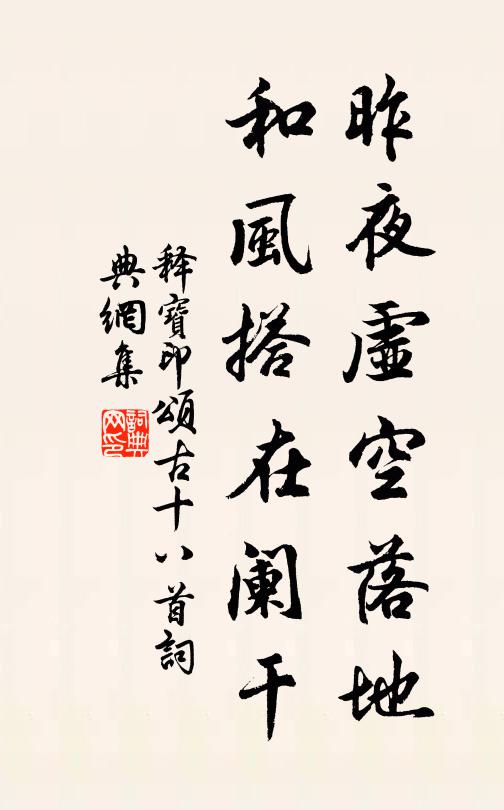 昨夜虛空落地
和風搭在阑干
释寶印頌古十八首詞
典網集
詞典网印